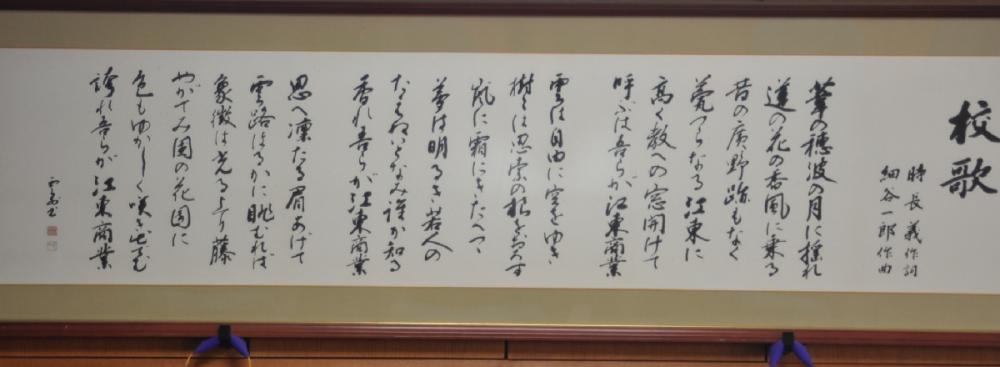 校歌
時長義作詞
細谷一郎作曲
葦の穂波の月に揺れ
蓮の花の香風に乗る
昔の広野跡もなく
甍つらなる江東に
高く教への窓開けて
呼ぶは吾らが江東商業
雲は自由に空をゆき
樹々は思索の根をおろす
嵐に霜にきたへつゝ
夢は明るき若人の
たゆまぬいとなみ誰か知る
香れ吾らが江東商業
思へ凛たる眉あげて
雲路はるかに眺むれば
象徴は光るより藤
やがてみ国の花園に
色もゆかしく咲き出でむ
誇れ吾らが江東商業